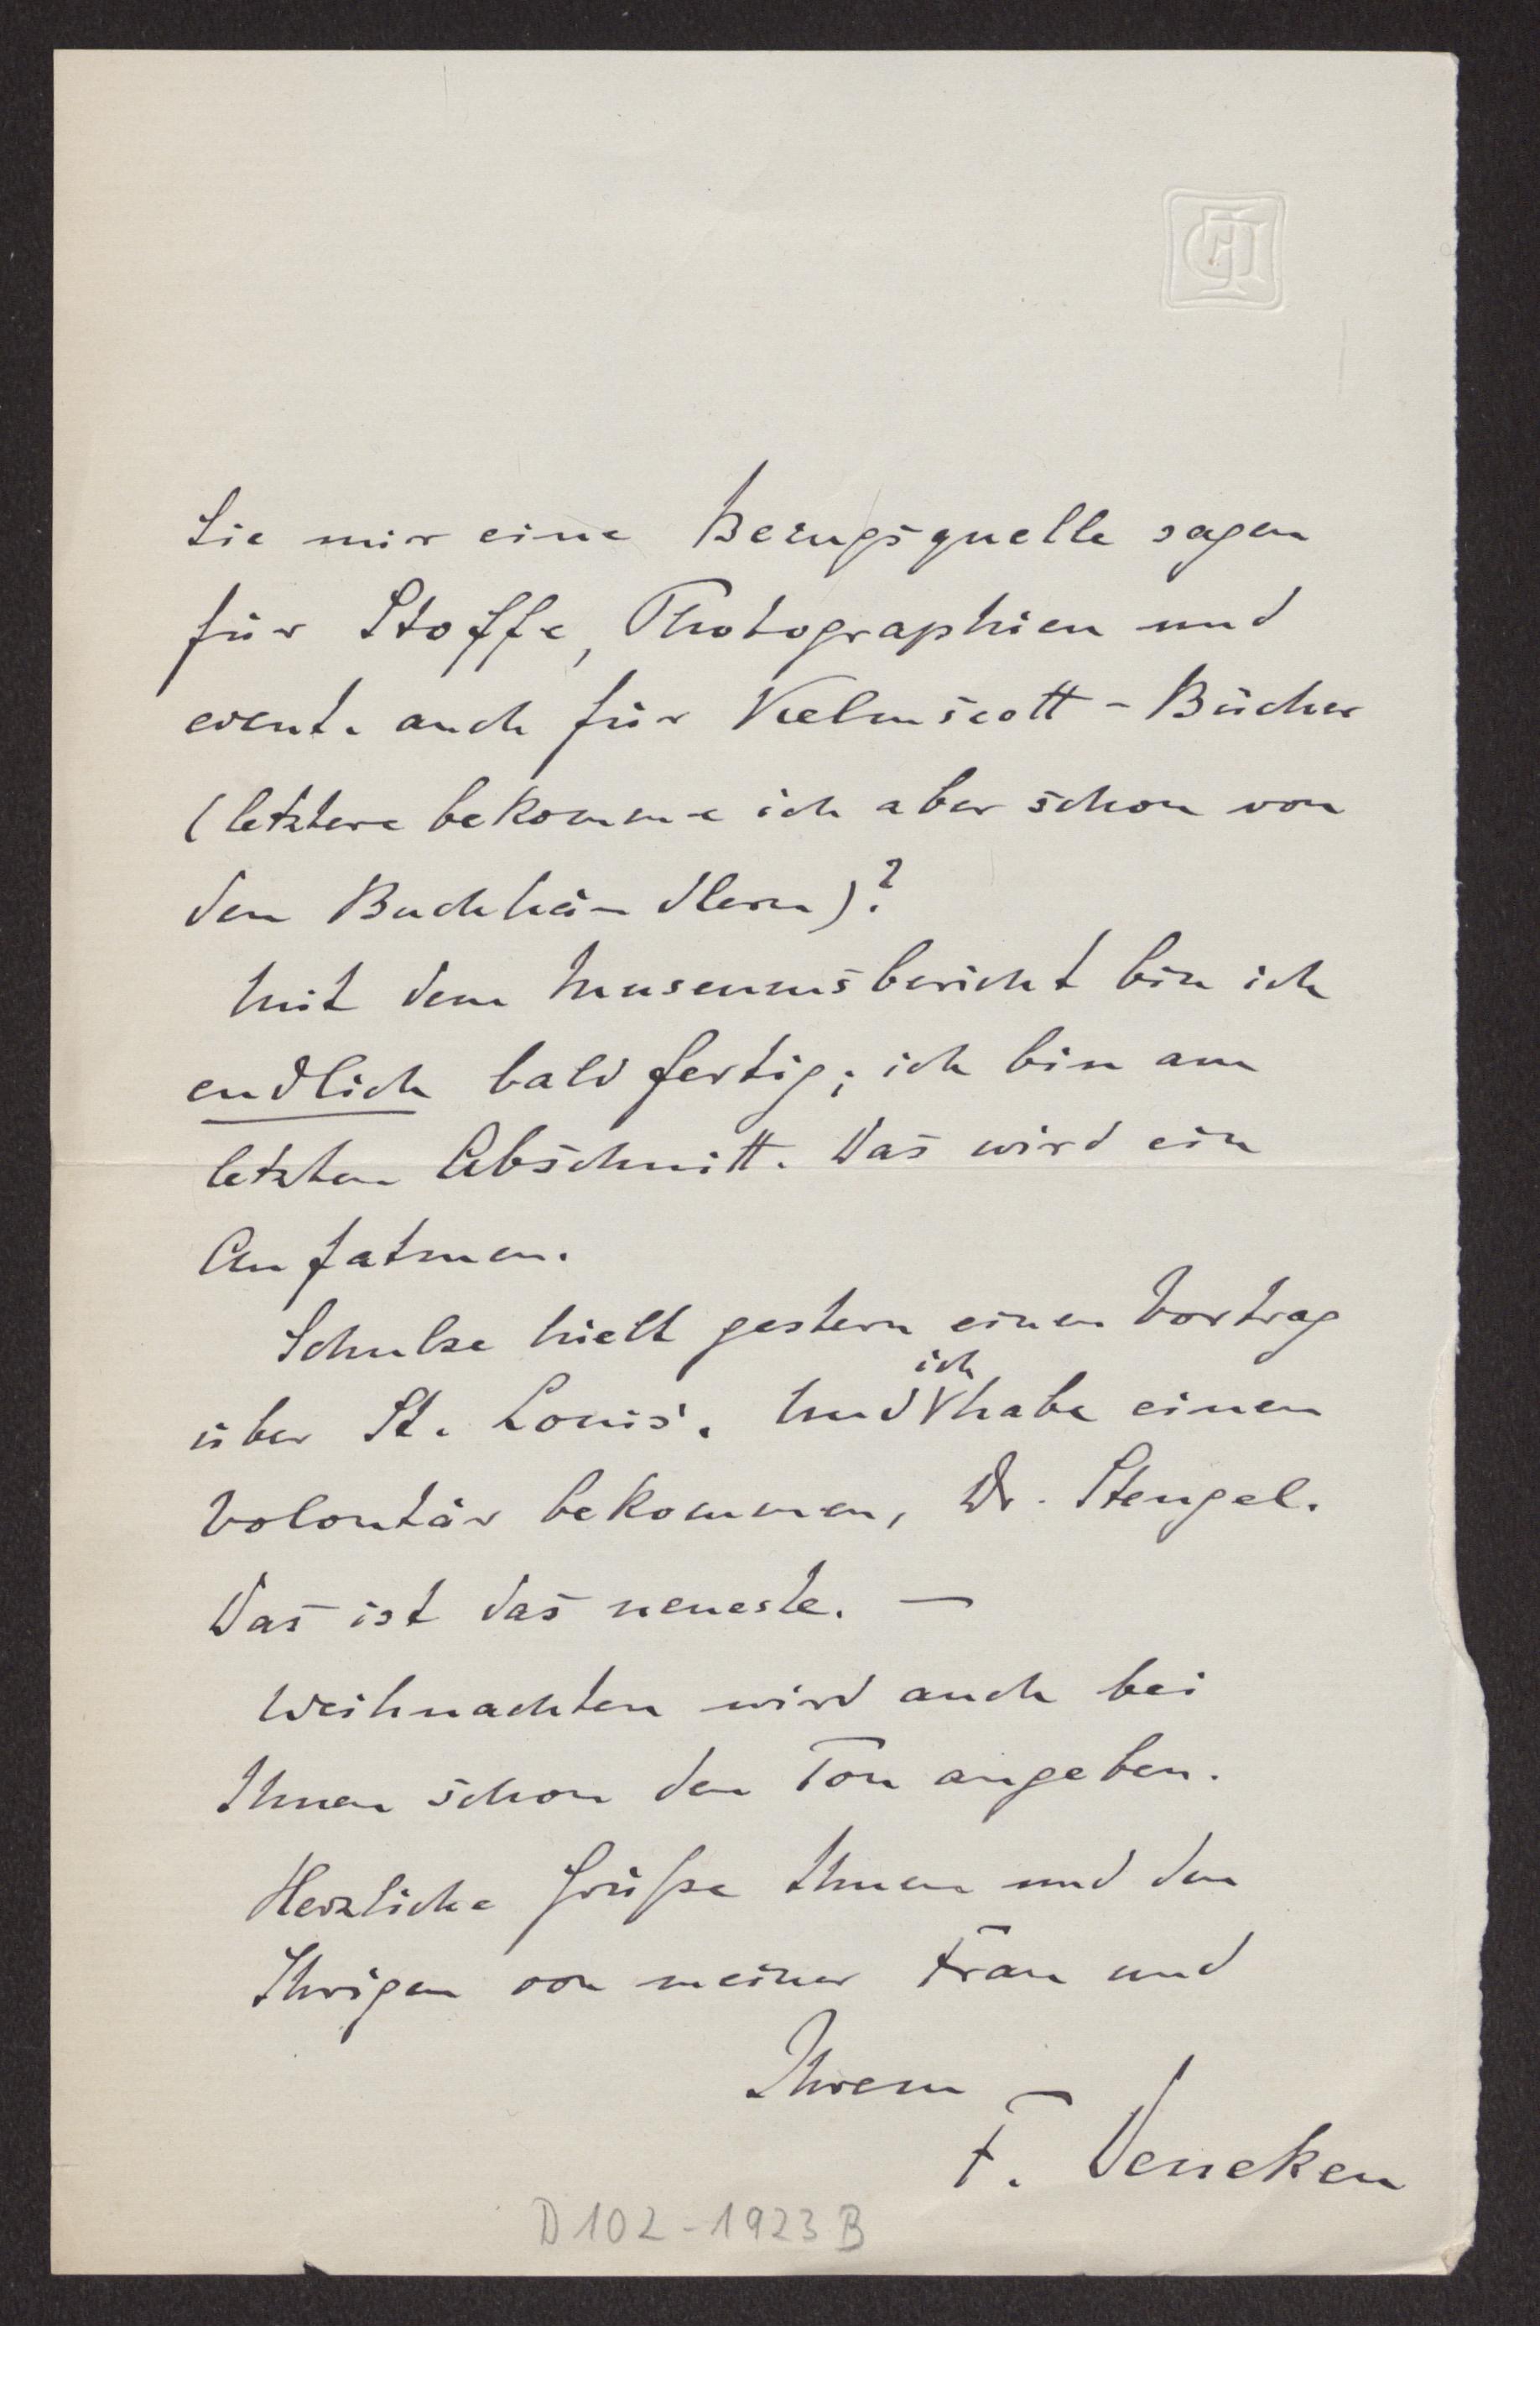 Sie mir eine Bezugsquelle sagen
für Stoffe, Photographien und
event. auch für Kelmscott-Bücher
(letztere bekomme ich aber schon von
den Buchhändlern)?
Mit dem Museumsbericht bin ich
endlich bald fertig; ich bin am
letzten Abschnitt. Das wird ein
Aufatmen.
Schulze hielt gestern einen Vortrag
ich
über St. Louis. Und habe einen
Volontär bekommen, Dr. Stengel.
Das ist das neueste. —
Weihnachten wird auch bei
Ihnen schon den Ton angeben.
Herzliche Grüße Ihnen und den
Ihrigen von meiner Frau und
Ihrem
F. Deneken
D 102-1923 B